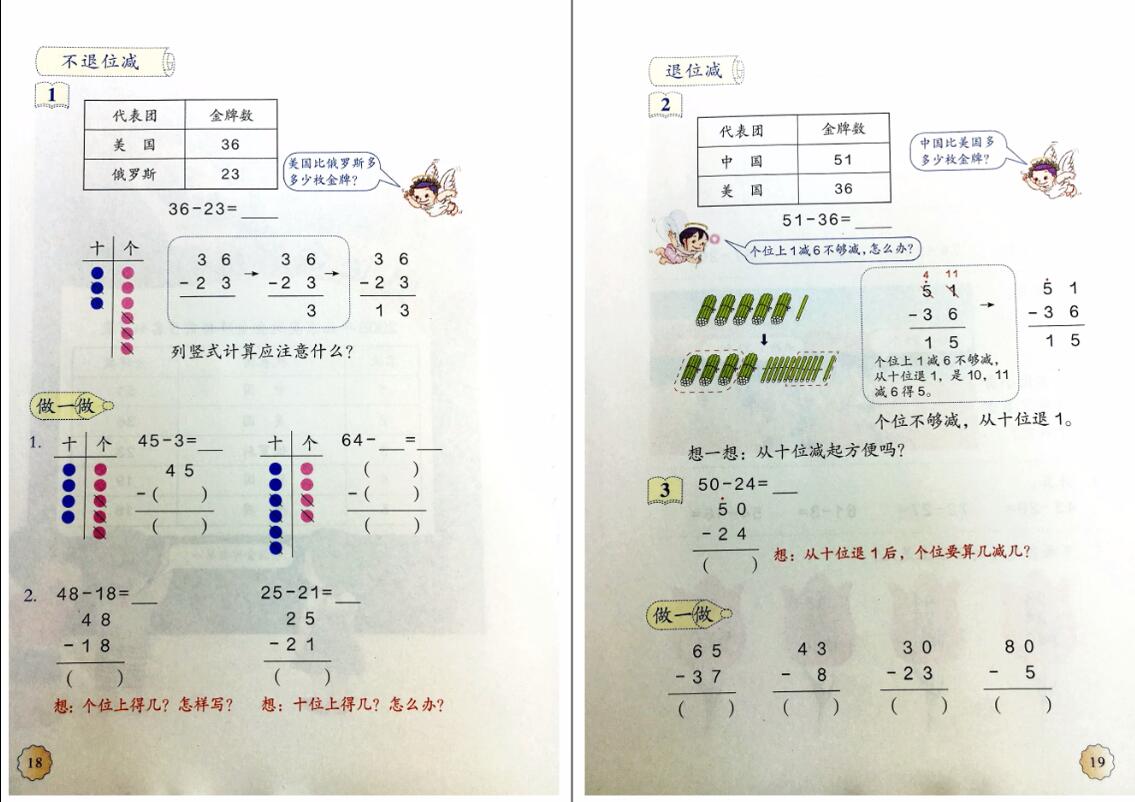 不退位减
1
代表团 金牌数
美 国 36
俄罗斯 23
美国比俄罗斯多
多少枚金牌?
36-23=____
十 个
3 6
-2 3
3 6
-2 3
3
3 6
-2 3
1 3
列竖式计算应注意什么?
做一做
1.
十 个
45-3=__
4 5
-( )
( )
十 个
64-__=__
( )
-( )
( )
2.
48-18=__
4 8
-1 8
( )
想:个位上得几?怎样写?
25-21=__
2 5
-2 1
( )
想:十位上得几?怎么办?
18
退位减
2
代表团 金牌数
中 国 51
美 国 36
中国比美国多
多少枚金牌?
51-36=____
个位上1减6不够减,怎么办?
4 11
5 1
-3 6
1 5
个位上1减6不够减,
从十位退1,是10,11
减6得5。
5 1
-3 6
1 5
个位不够减,从十位退1。
想一想:从十位减起方便吗?
3
50-24=__
5 0
-2 4
( )
想:从十位退1后,个位要算几减几?
做一做
6 5
-3 7
( )
4 3
- 8
( )
3 0
-2 3
( )
8 0
- 5
( )
19